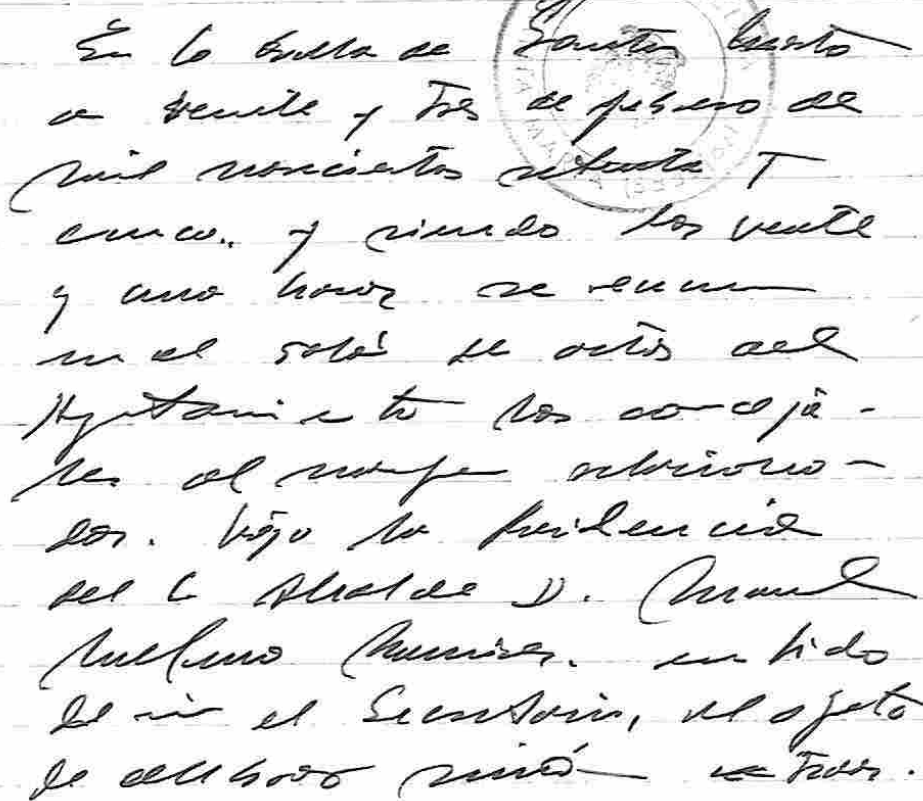 En la Villa de Santa Marta
a veinte y tres de febrero de
mil novecientos setenta y
cinco, y siendo las veinte
y una horas se reunen
en el salón de actos del
Ayuntamiento los conceja-
les al margen relaciona-
dos. bajo la Presidencia
del Alcalde D. Manuel
Ramirez. asistido
de mi el Secretario, al objeto
de celebrar sesión